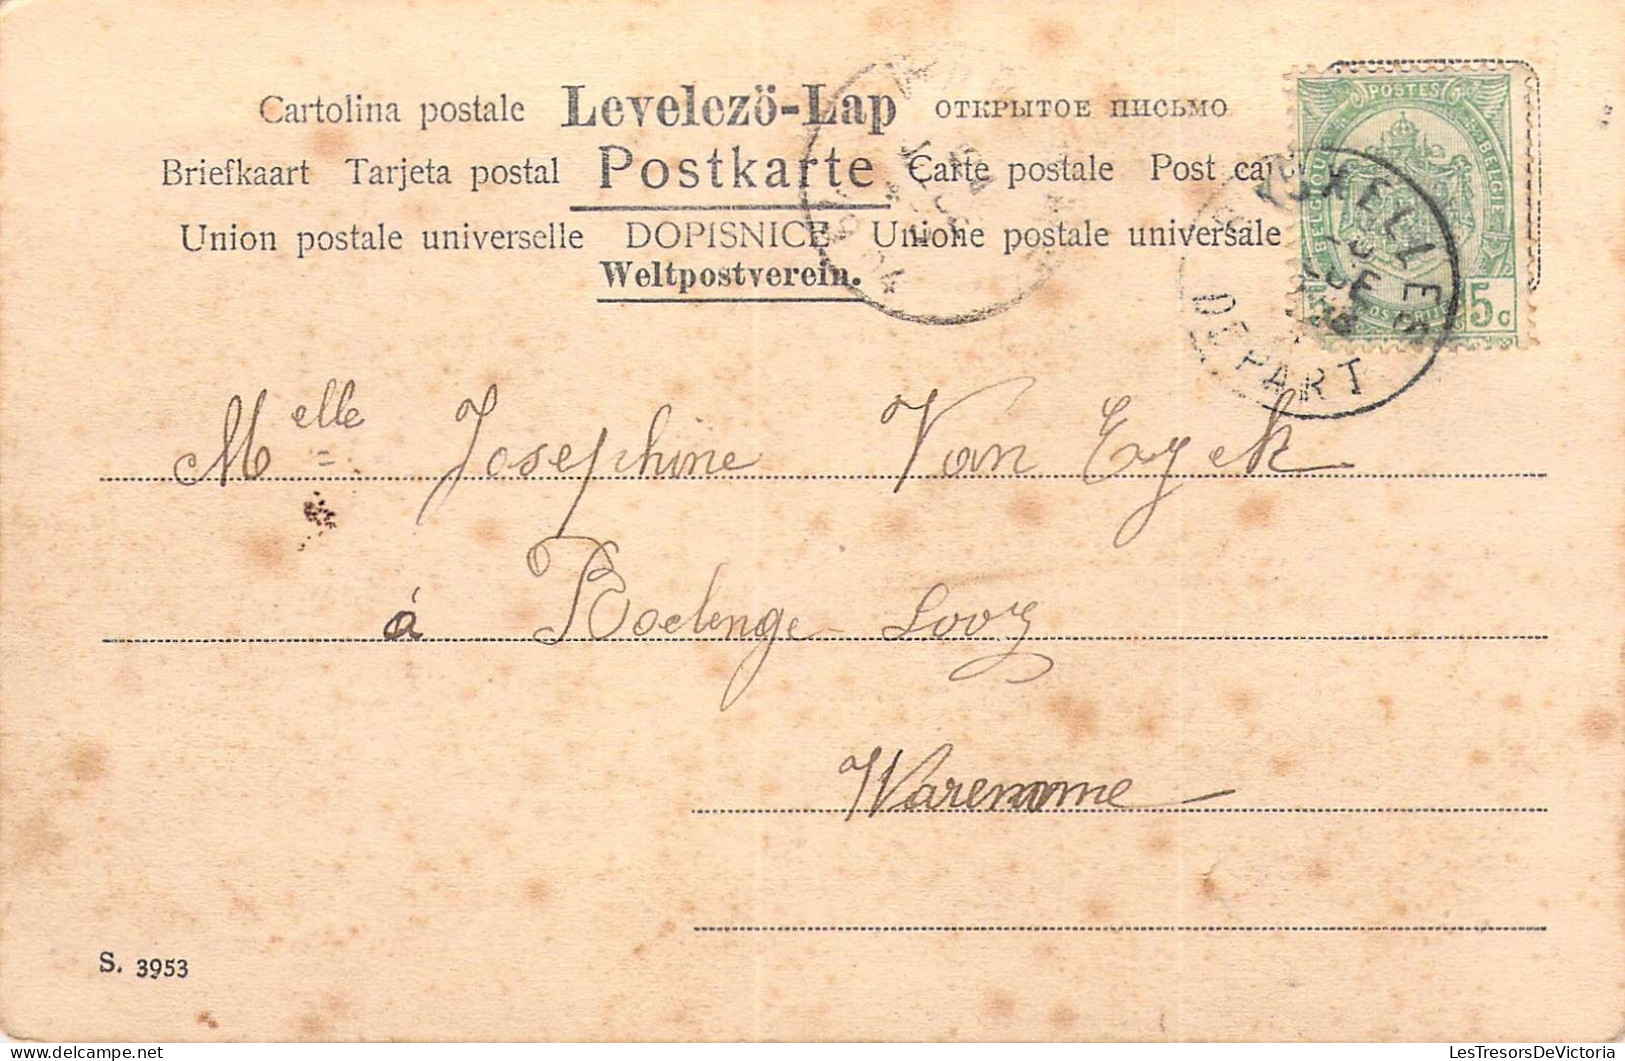 Cartolina postale Levelező-Lap ОТКРЫТОЕ ПИСЬМО
Briefkaart Tarjeta postal Postkarte Carte postale Post car
Union postale universelle DOPISNICE Unione postale universale
Weltpostverein.
POSTES
BELGIQUE BELGIË
5c
IXELLES
DEPART
Melle Josephine Van Eyck
á Roelenge Looz
Waremme
S. 3953
LesTresorsDeVictoria